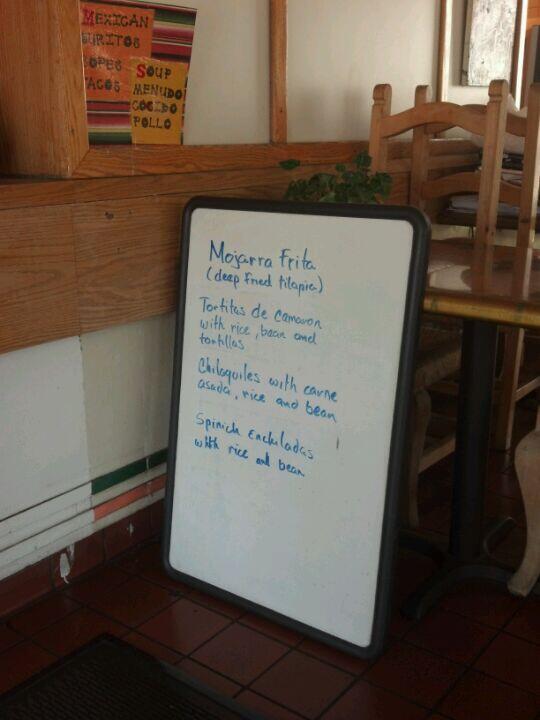 MEXICAN
BURITOS
SOPES
TACOS
SOUP
MENUDO
COCIDO
POLLO
Mojarra Frita
(deep Fried tilapia)
Tortitas de Camaron
with rice, bean and
tortillas
Chilaquiles with carne
asada, rice and bean
Spinich Enchiladas
with rice and bean